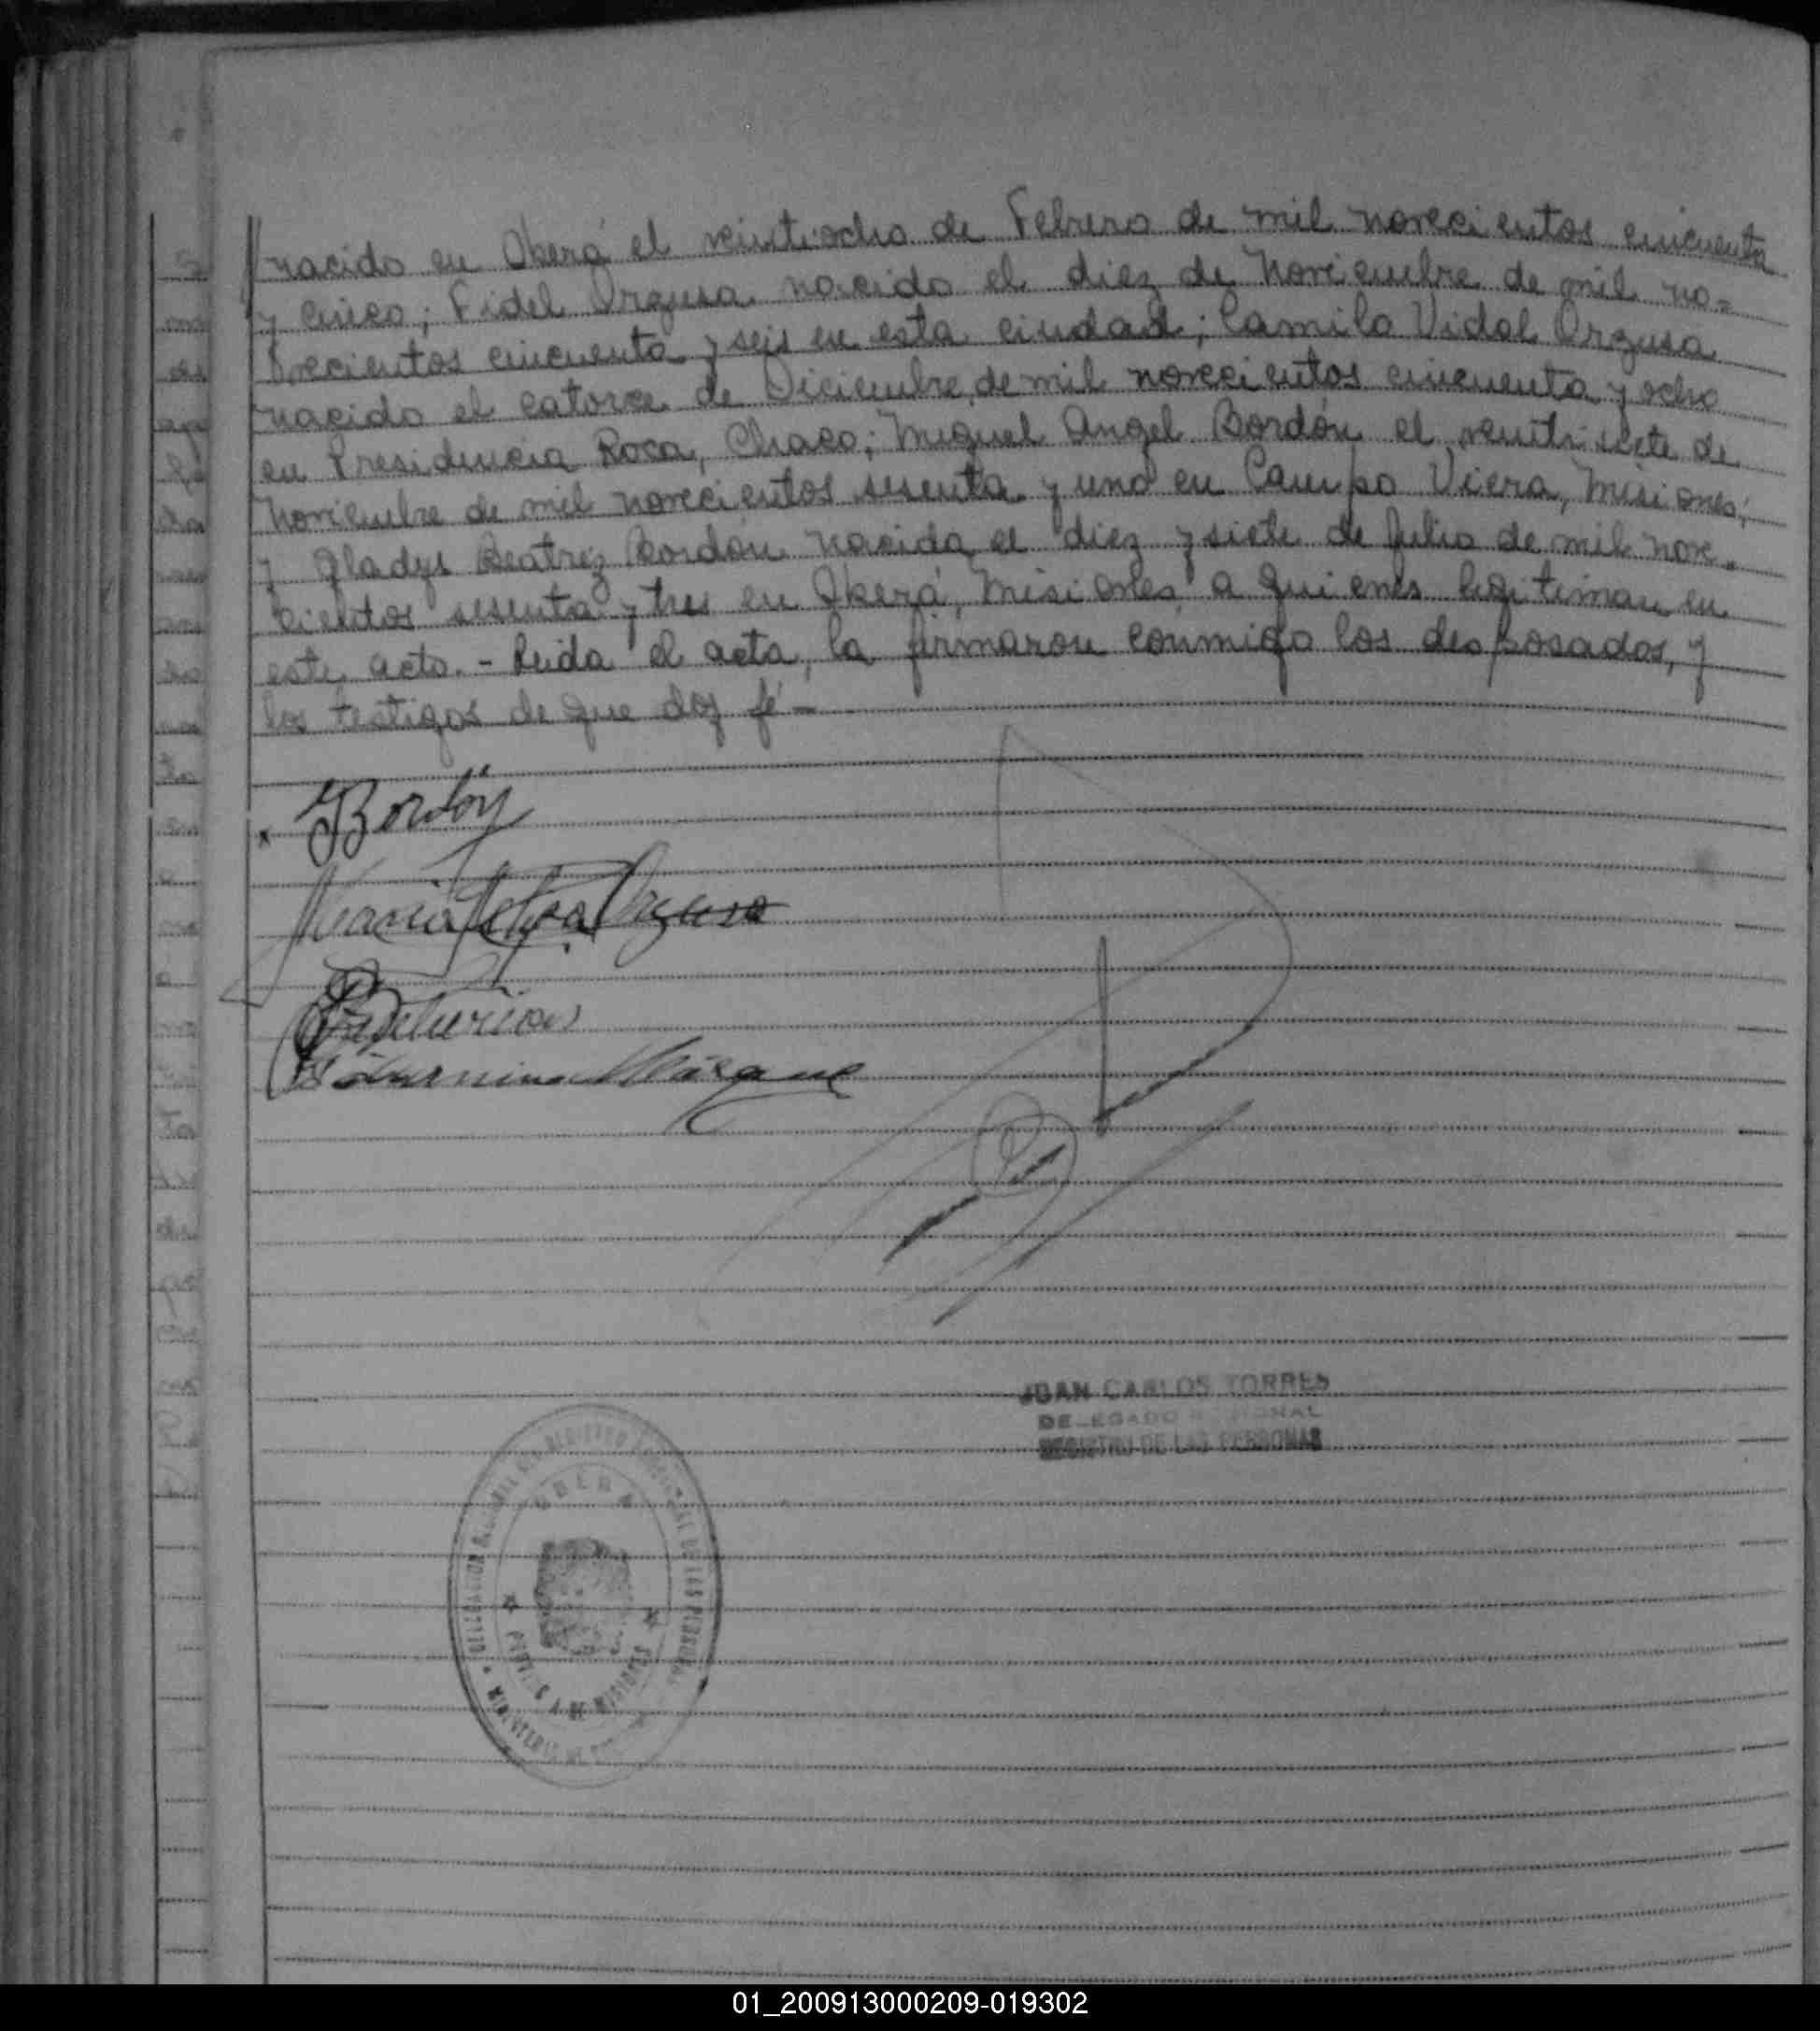 nacido en Oberá el veintiocho de Febrero de mil novecientos cincuenta
y cinco; Fidel Orzusa nacido el diez de Noviembre de mil no=
vecientos cincuenta y seis en esta ciudad; Camilo Vidal Orzusa
nacido el catorce de Diciembre de mil novecientos cincuenta y ocho
en Presidencia Roca, Chaco; Miguel Angel Bordón el veintisiete de
Noviembre de mil novecientos sesenta y uno en Campo Viera, Misiones;
y Gladys Beatriz Bordón nacida el diez y siete de Julio de mil nove_
cientos sesenta y tres en Oberá, Misiones a quienes legitiman en
este acto. - Leida el acta, la firmaron conmigo los desposados, y
los testigos de que doy fé -
Bordón
Orzusa
JUAN CARLOS TORRES
DELEGADO
REGISTRO DE LAS PERSONAS
OBERA
PROVINCIA DE MISIONES
01_200913000209-019302